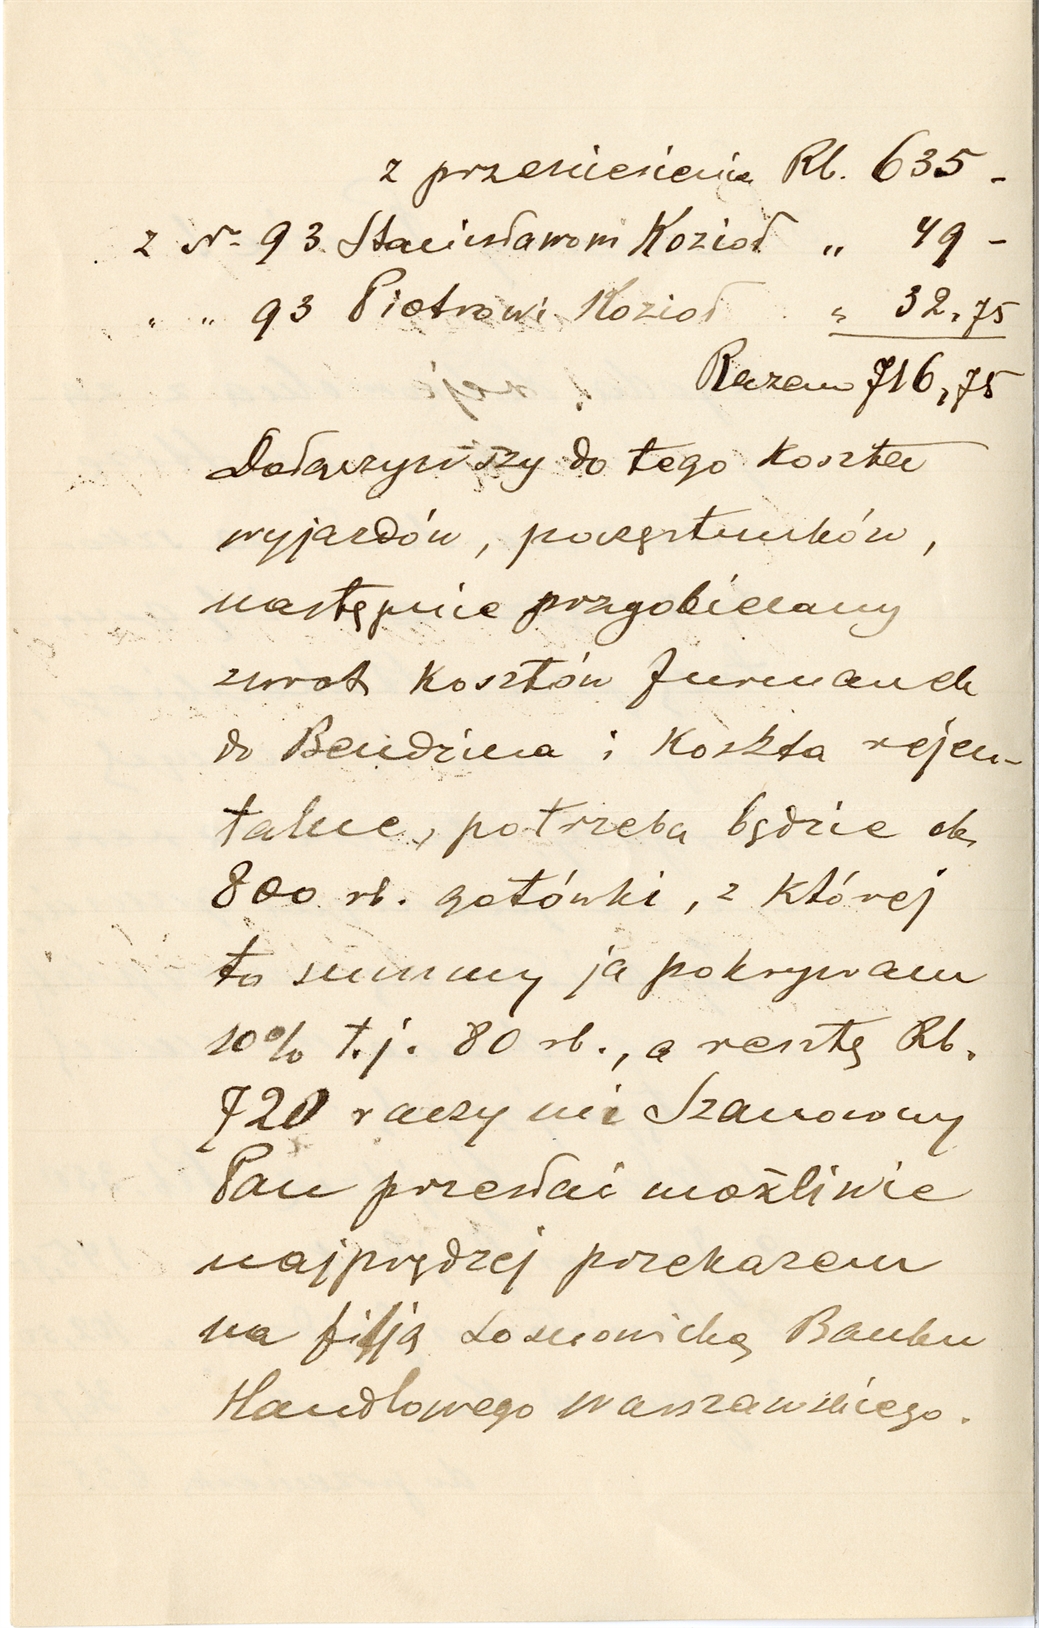 z przeniesienia Rb. 635 -
z Nr 93 Stanisławowi Kozioł „ 49 -
„ „ 93 Piotrowi Kozioł „ 32,75
Razem 716,75
Dołączywszy do tego koszta
wyjazdów, poczęstunków,
następnie przyobiecany
zwrot kosztów furmanek
do Bendzina i koszta rejen-
talne, potrzeba będzie ok.
800 rb. gotówki, z której
to summy ja pokrywam
10% t.j. 80 rb., a resztę Rb.
720 raczy mi Szanowny
Pan przesłać możliwie
najprędzej przekazem
na filją Sosnowicką Banku
Handlowego warszawskiego.